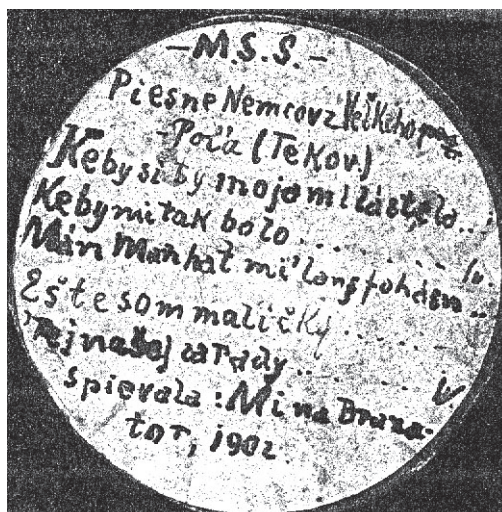 - M.S.S. -
Piesne Nemcov z Veľkého
- Poľa (Tekov.)
Keby si ty moja milá
Keby mi tak bolo . . . . . .
Min Man hat mi' long
Ešte som maličký . . . . .
Tej našej zárady . . . . . V
spievala: Mina Brana-
tor, 1902.